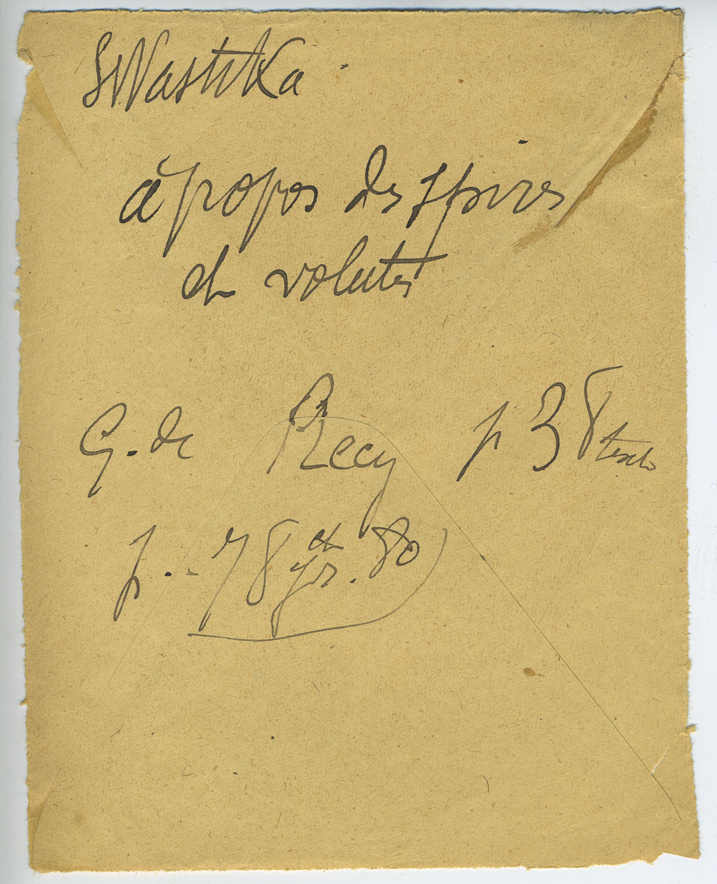 SWastiKa
à propos des spires
et volutes
G. de Recy p 38 texte
p. 78 et 80